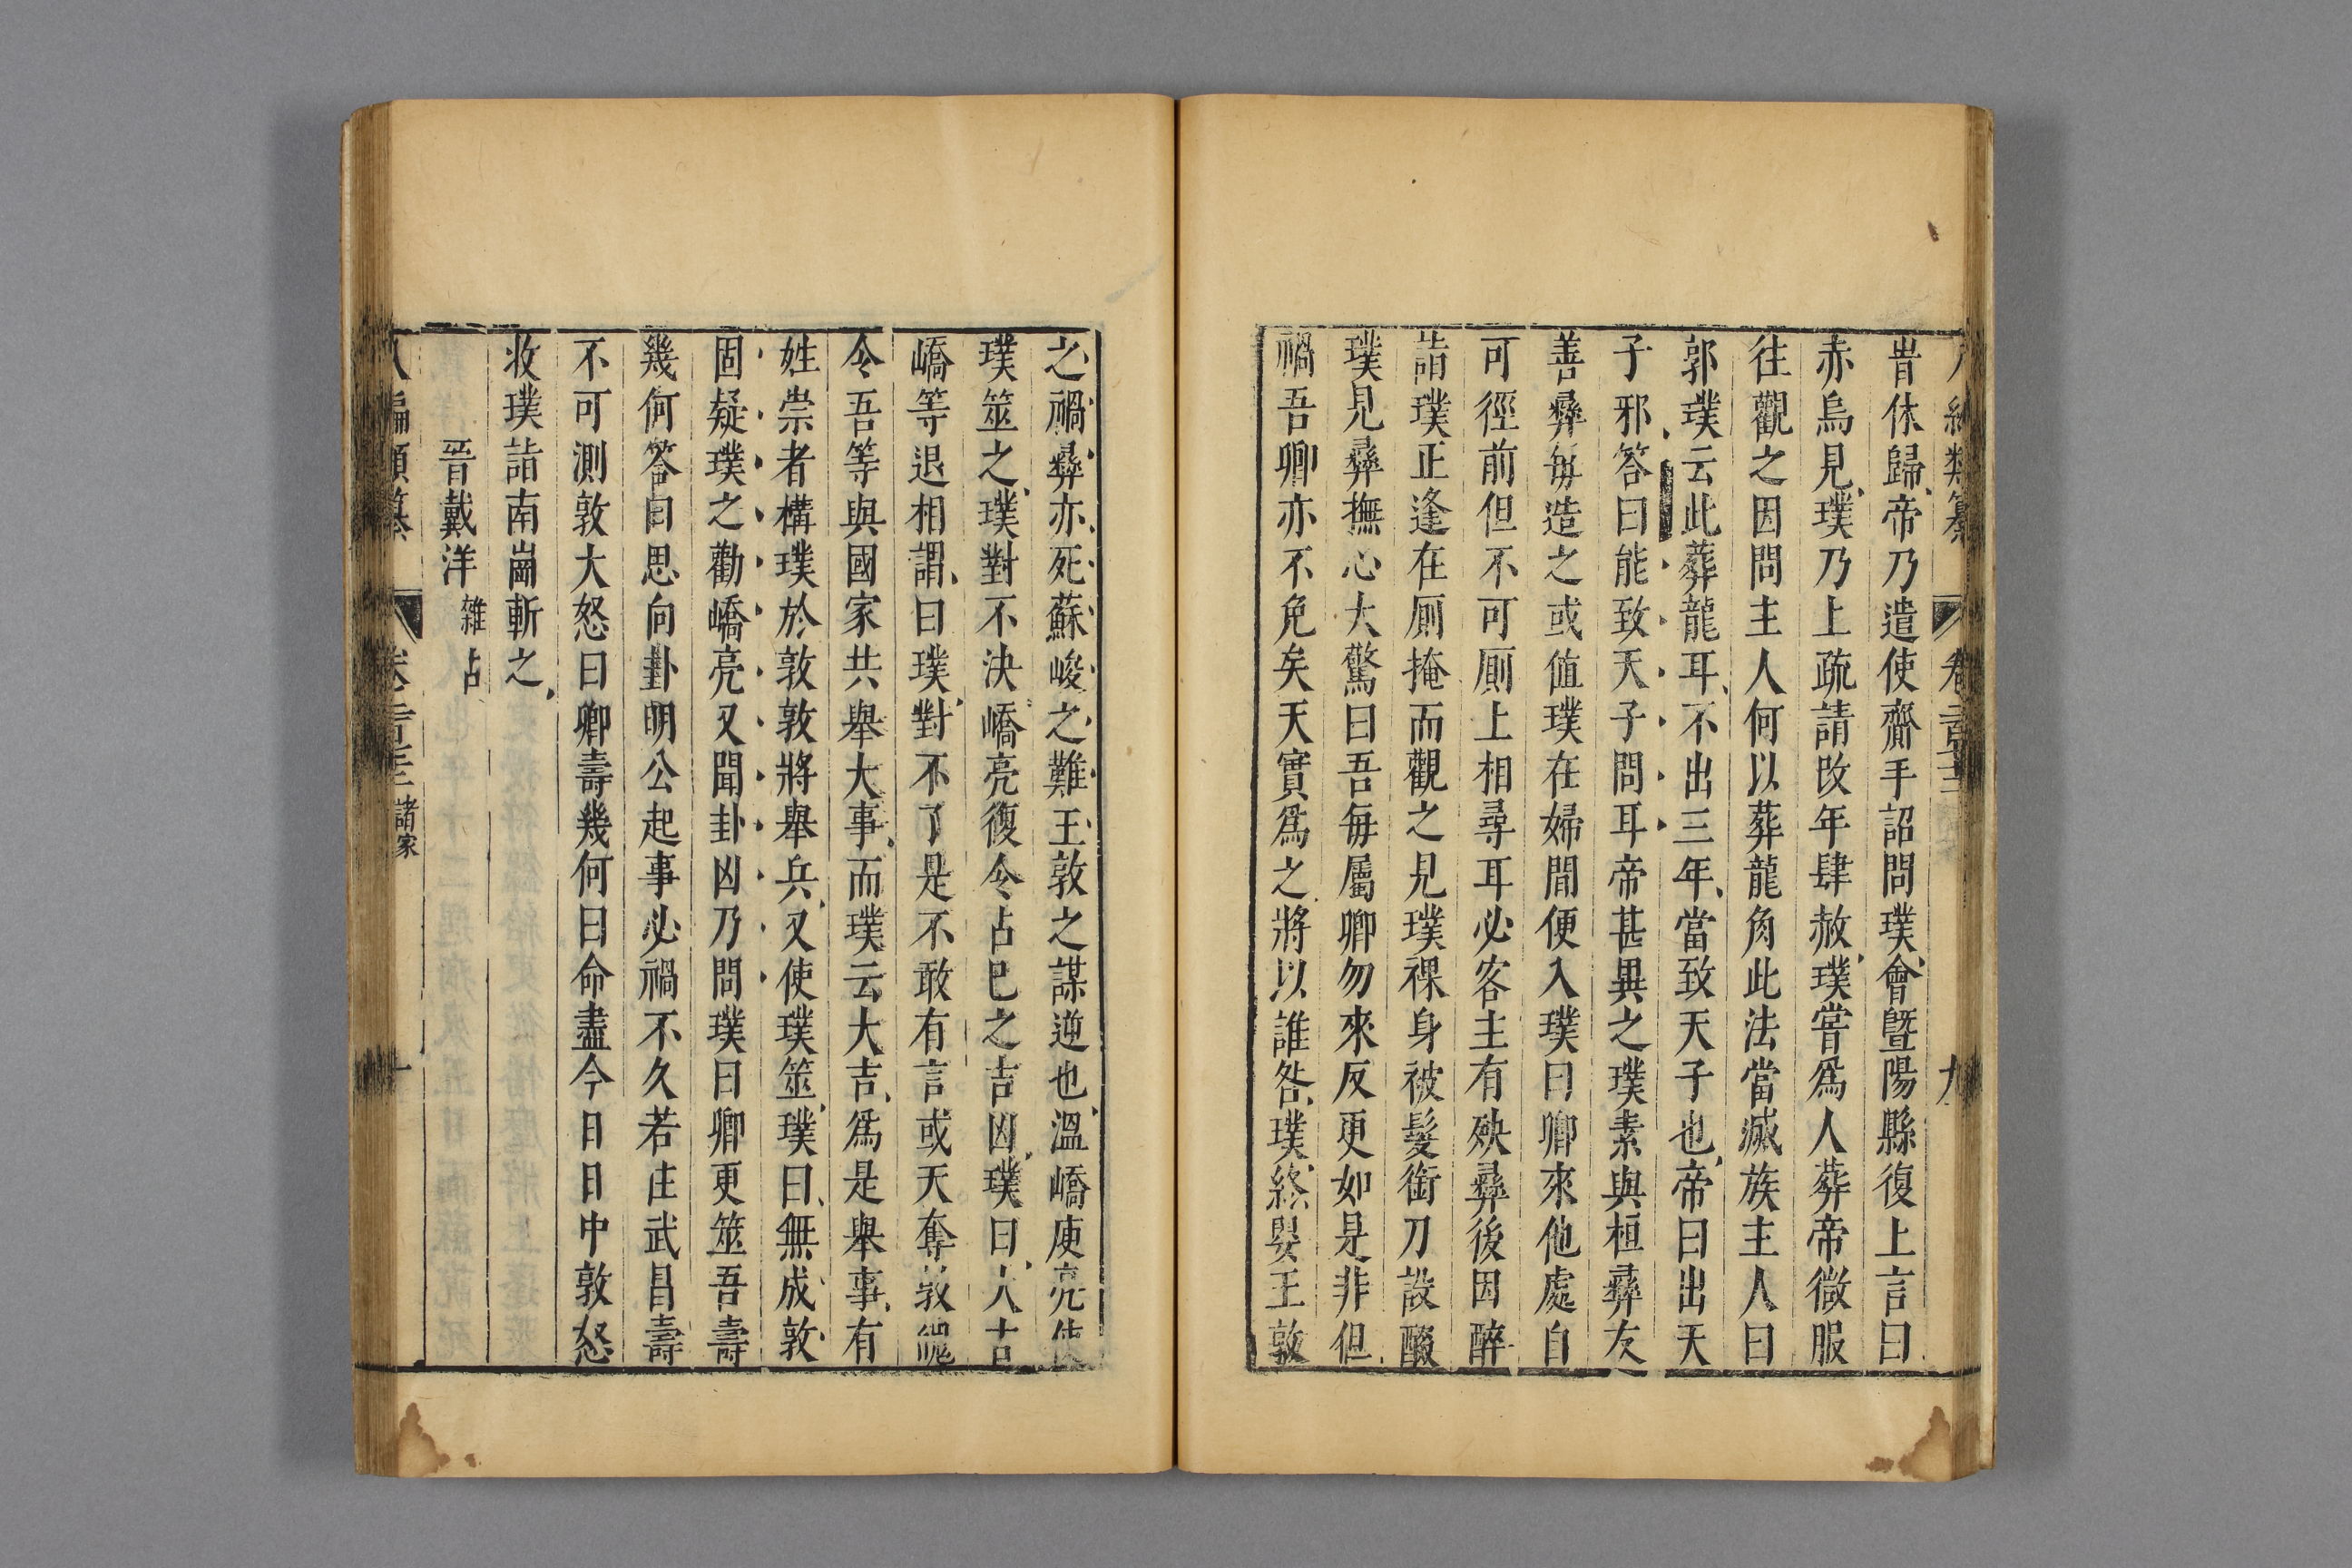 編類纂 卷一百三十三 九
昔休歸帝乃遣使齎手詔問璞會曁陽縣復上言曰
赤烏見璞乃上疏請改年肆赦璞嘗爲人葬帝微服
往觀之因問主人何以葬龍角此法當滅族主人曰
郭璞云此葬龍耳不出三年當致天子也帝曰出天
子邪答曰能致天子問耳帝甚異之璞素與桓彞友
善彞每造之或值璞在婦間便入璞曰卿來他處自
可徑前但不可厠上相尋耳必客主有殃彞後因醉
詣璞正逢在厠掩而觀之見璞裸身被髮銜刀設醊
璞見彞撫心大驚曰吾每屬卿勿來反更如是非但
禍吾卿亦不免矣天實爲之將以誰咎璞終嬰王敦
之禍彞亦死蘇峻之難王敦之謀逆也溫嶠庾亮使
璞筮之璞對不決嶠亮復令占巳之吉凶璞曰大吉
嶠等退相謂曰璞對不了是不敢有言或天奪敦魄
今吾等與國家共舉大事而璞云大吉爲是舉事有
姓崇者構璞於敦敦將舉兵又使璞筮璞曰無成敦
固疑璞之勸嶠亮又聞卦凶乃問璞曰卿更筮吾壽
幾何答曰思向卦明公起事必禍不久若住武昌壽
不可測敦大怒曰卿壽幾何曰命盡今日日中敦怒
收璞詣南崗斬之
晉戴洋 雜占
八編類纂 卷一百三十三 諸家 十